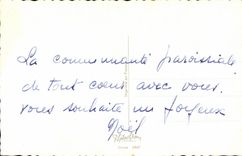 La communauté paroissiale
de tout cœur avec vous.
vous souhaite un Joyeux
Noël